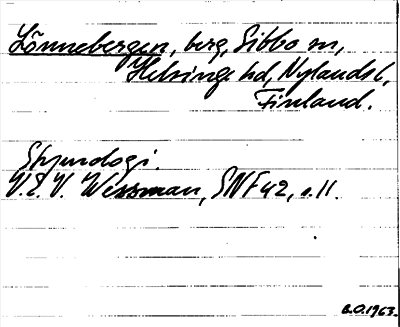 Lönnebergen, berg, Sibbo sn,
Helsinge hd, Nylands l,
Finland.
Etymologi.
V. E. V. Wessman, SNF 42, s. 11.
B.O. 1963.